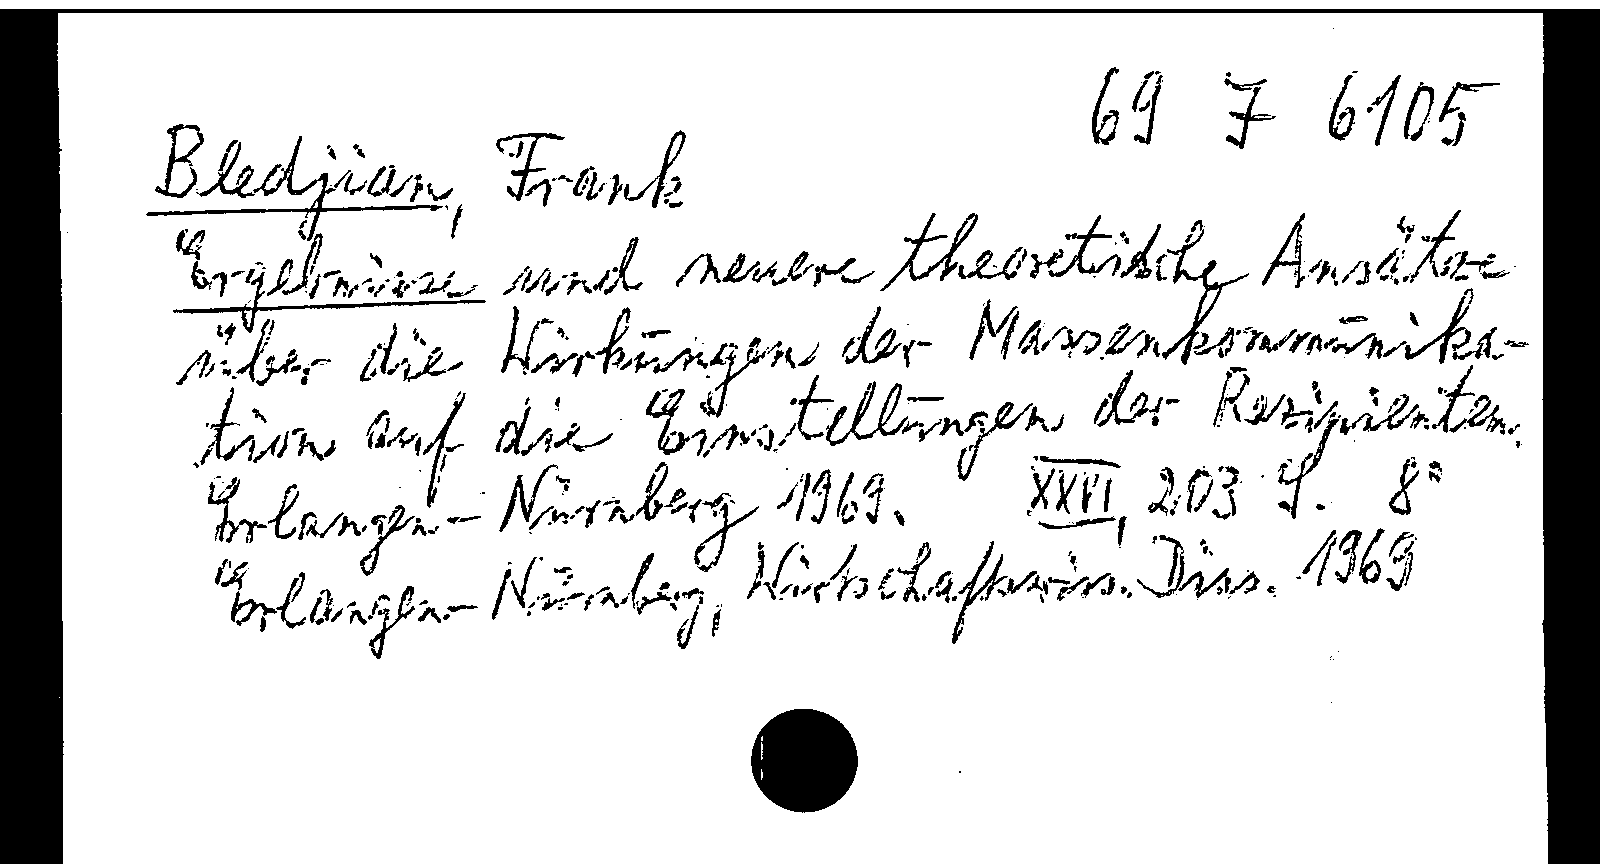 69 7 6105
Bledjian, Frank
Ergebnisse und neuere theoretische Ansätze
über die Wirkungen der Massenkommunika-
tion auf die Einstellungen der Rezipienten.
Erlangen-Nürnberg 1969. XXVI, 203 S. 8°
Erlangen-Nürnberg, Wirtschaftswiss. Diss. 1969